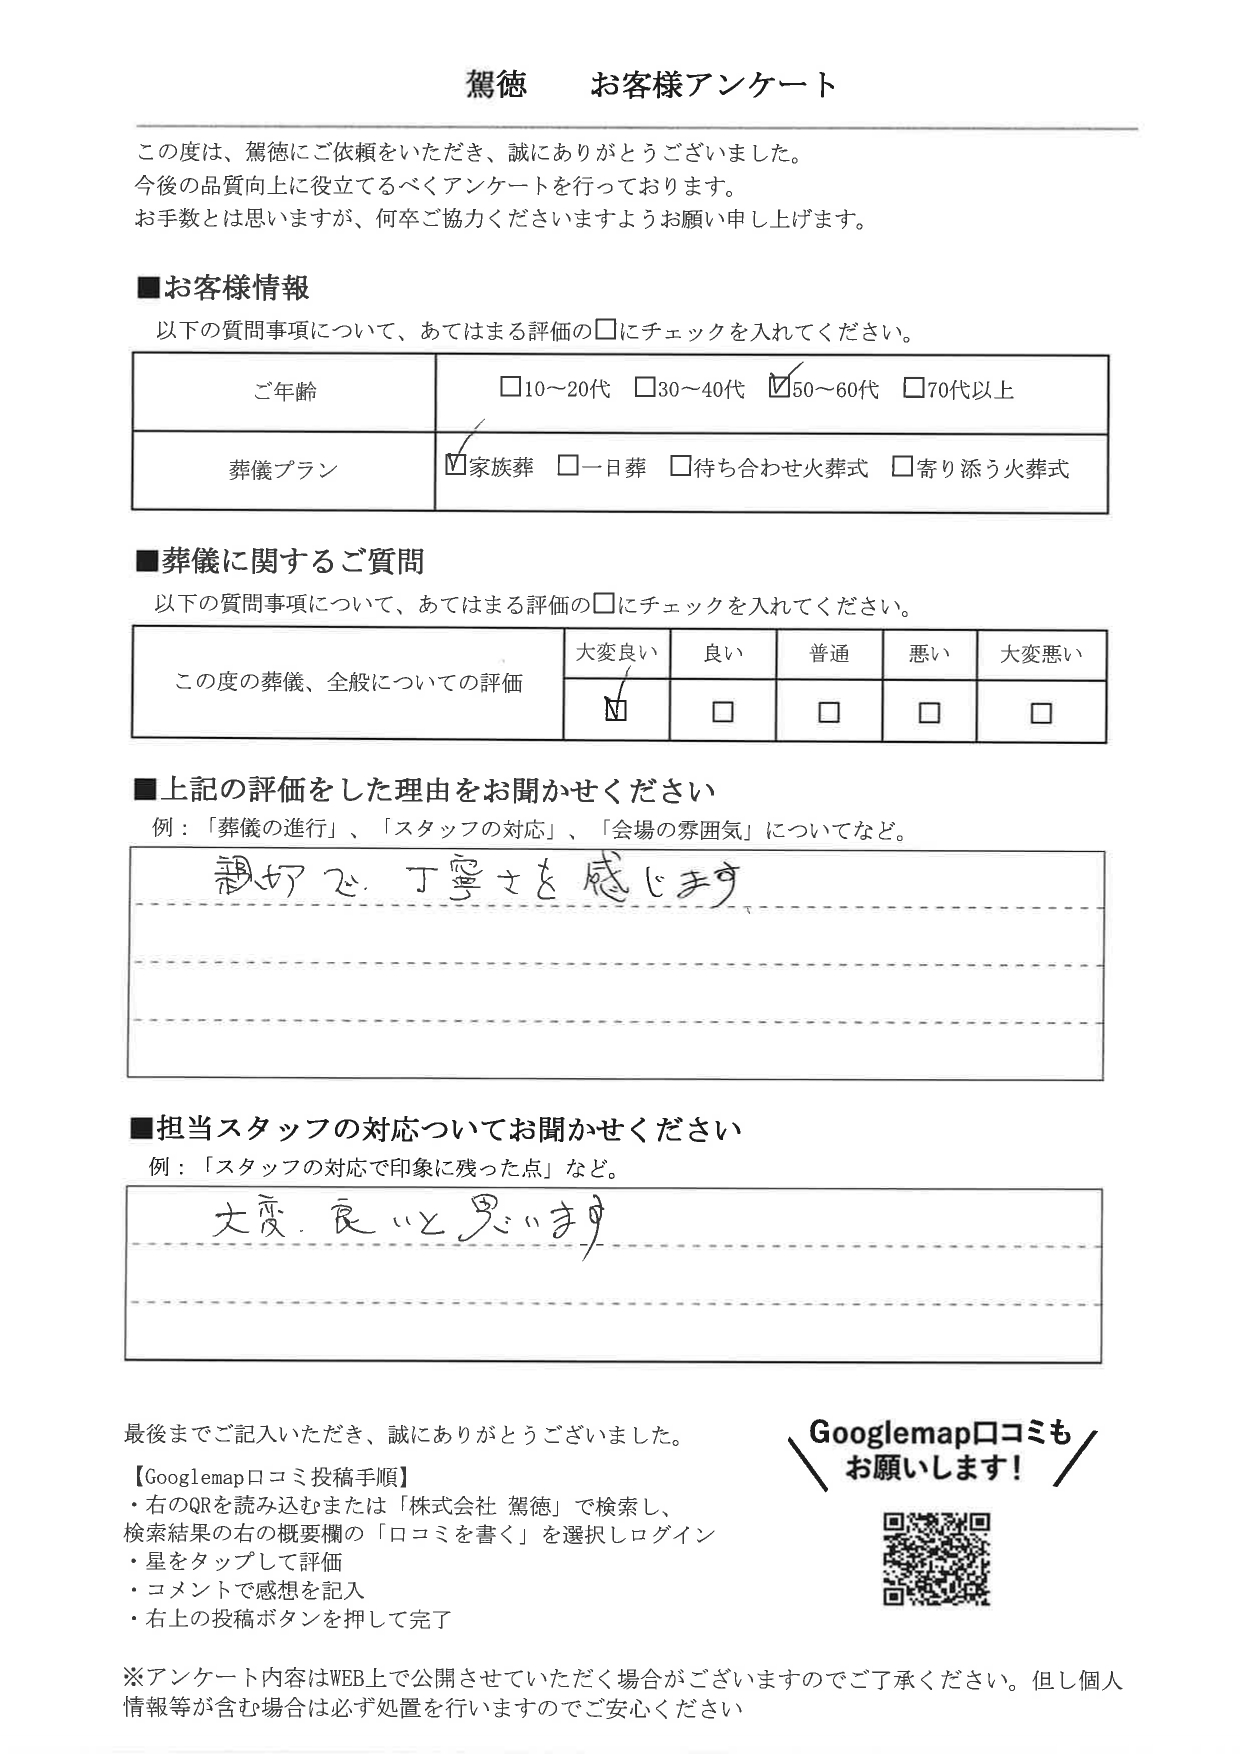 駕徳　　お客様アンケート
この度は、駕徳にご依頼をいただき、誠にありがとうございました。
今後の品質向上に役立てるべくアンケートを行っております。
お手数とは思いますが、何卒ご協力くださいますようお願い申し上げます。
■お客様情報
以下の質問事項について、あてはまる評価の□にチェックを入れてください。
ご年齢　□10～20代　□30～40代　☑50～60代　□70代以上
葬儀プラン　☑家族葬　□一日葬　□待ち合わせ火葬式　□寄り添う火葬式
■葬儀に関するご質問
以下の質問事項について、あてはまる評価の□にチェックを入れてください。
大変良い　良い　普通　悪い　大変悪い
この度の葬儀、全般についての評価　☑　□　□　□　□
■上記の評価をした理由をお聞かせください
例：「葬儀の進行」、「スタッフの対応」、「会場の雰囲気」についてなど。
親切で、丁寧さを感じます、
■担当スタッフの対応ついてお聞かせください
例：「スタッフの対応で印象に残った点」など。
大変、良いと思います
最後までご記入いただき、誠にありがとうございました。
【Googlemap口コミ投稿手順】
・右のQRを読み込むまたは「株式会社 駕徳」で検索し、
検索結果の右の概要欄の「口コミを書く」を選択しログイン
・星をタップして評価
・コメントで感想を記入
・右上の投稿ボタンを押して完了
Googlemap口コミも
お願いします！
※アンケート内容はWEB上で公開させていただく場合がございますのでご了承ください。但し個人
情報等が含む場合は必ず処置を行いますのでご安心ください